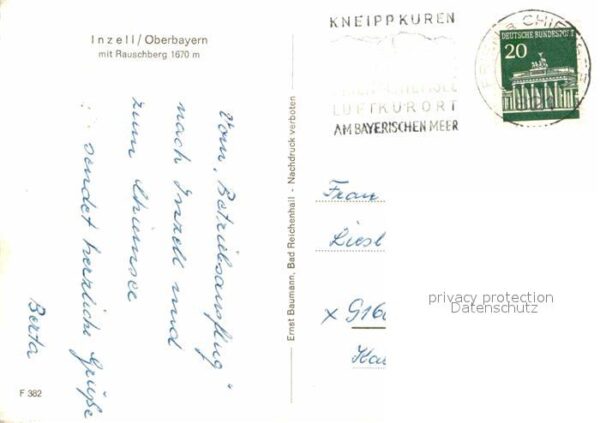 Inzell/Oberbayern
mit Rauschberg 1670 m
Vom „Betriebsausflug"
nach Inzell und
zum Chiemsee
sendet herzliche Grüße
Berta
F 382
Ernst Baumann, Bad Reichenhall - Nachdruck verboten
KNEIPPKUREN
LUFTKURORT
AM BAYERISCHEN MEER
DEUTSCHE BUNDESPOST
20
Frau
Liesl
privacy protection
Datenschutz